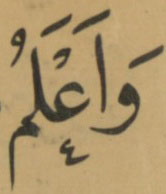 وَاَعْلَمُ
٤